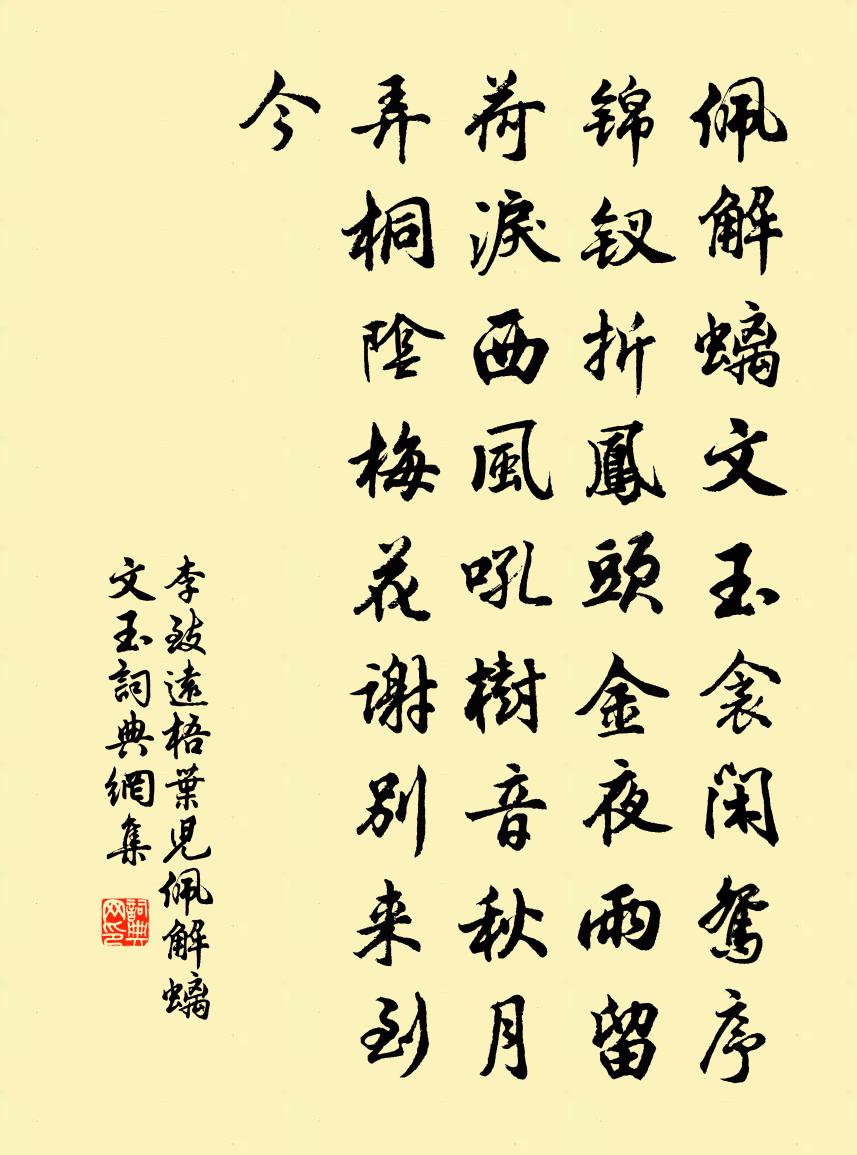 佩解螭文玉衾闲鴛序
锦钗折鳳頭金夜雨留
荷淚西風吼樹音秋月
弄桐陰梅花谢別来到
今
李致遠梧葉兒佩解螭
文玉詞典網集
詞典
网印